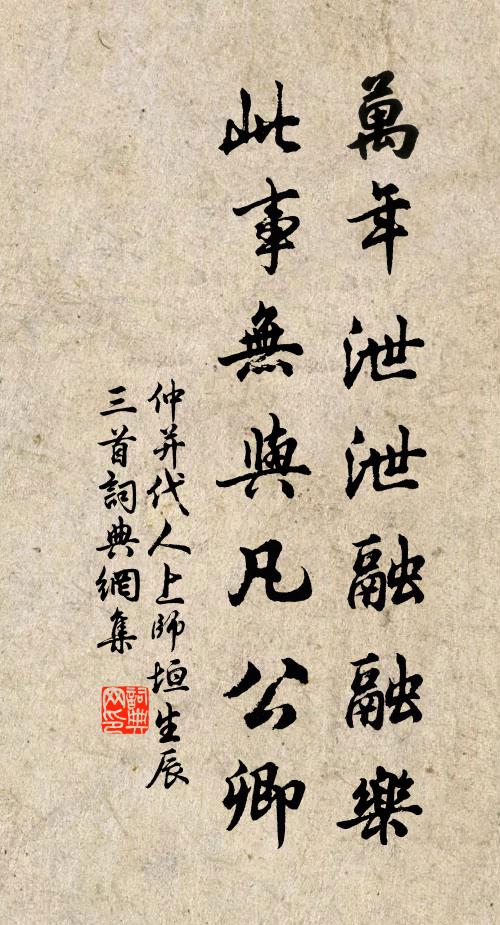 萬年泄泄融融樂
此事無與凡公卿
仲并代人上師垣生辰
三首詞典網集
詞典
网印